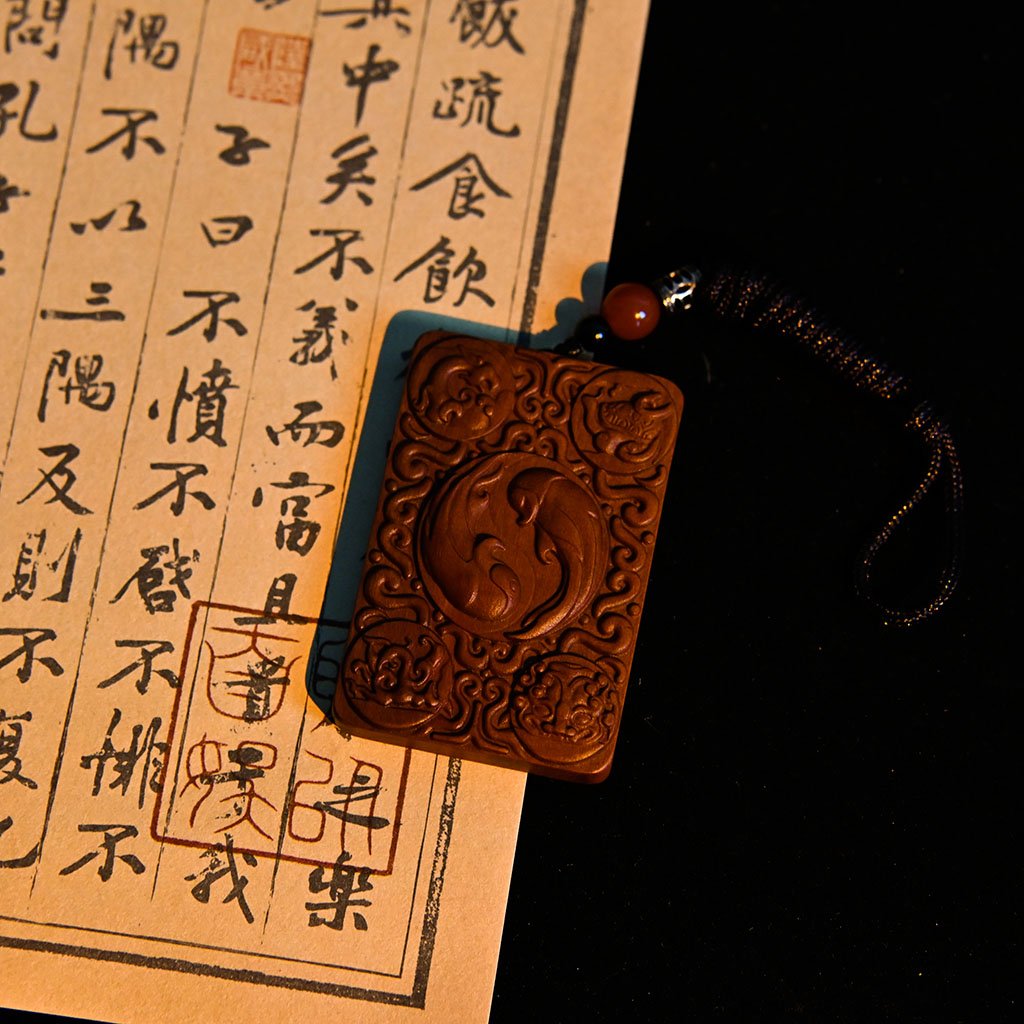 飯疏食飲之樂
其中矣不義而富且貴於我
子曰不憤不啓不悱不
隅不以三隅反則不復也
問孔子